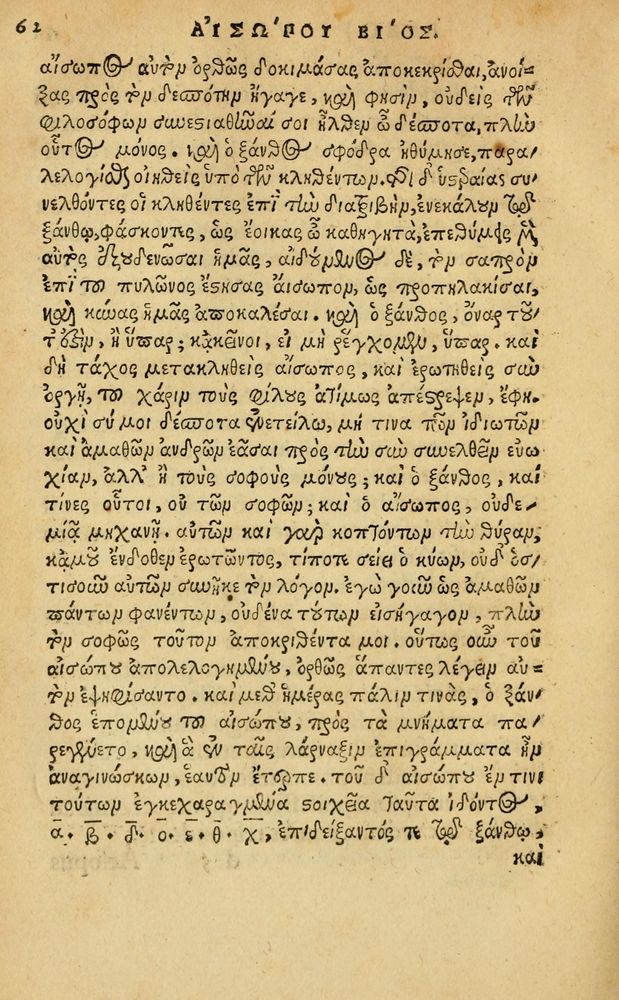 62 ΑἸΣΩ'ΠΟΥ ΒΙ'ΟΣ.
αἴσωπος αὐτὸν ὀρθῶς δοκιμάσας ἀποκεκρίσθαι, ἀνοί-
ξας πρὸς τὸν δεσπότην ἤγαγε, καὶ φησὶν, οὐδεὶς τῶν
φιλοσόφων συνεστιαθῆναί σοι ἦλθεν ὦ δέσποτα, πλὴν
οὗτος μόνος. καὶ ὁ ξάνθος σφόδρα ἠθύμησε, παρα-
λελογίσθαι οἰηθεὶς ὑπὸ τῶν κληθέντων. τῇ δ' ὑστεραίᾳ συ-
νελθόντες οἱ κληθέντες ἐπὶ τὴν διατριβὴν, ἐνεκάλουν τῷ
ξάνθῳ, φάσκοντες, ὡς ἔοικας ὦ καθηγητὰ, ἐπεθύμεις μὲν
αὐτὸς ἐξουδενῶσαι ἡμᾶς, αἰδούμενος δὲ, τὸν σαπρὸν
ἐπὶ τοῦ πυλῶνος ἔστησας αἴσωπον, ὡς προπηλακίσαι,
καὶ κύνας ἡμᾶς ἀποκαλέσαι. καὶ ὁ ξάνθος, ὄναρ τοῦ-
τό ἐστιν, ἢ ὕπαρ; κἀκεῖνοι, εἰ μὴ ῥέγχομεν, ὕπαρ. καὶ
δὴ τάχος μετακληθεὶς αἴσωπος, καὶ ἐρωτηθεὶς σὺν
ὀργῇ, τοῦ χάριν τοὺς φίλους ἀτίμως ἀπέστρεψεν, ἔφη.
οὐχὶ σύ μοι δέσποτα ἐνετείλω, μή τινα τῶν ἰδιωτῶν
καὶ ἀμαθῶν ἀνδρῶν ἐᾶσαι πρὸς τὴν σὴν συνελθεῖν εὐω-
χίαν, ἀλλ' ἢ τοὺς σοφοὺς μόνους; καὶ ὁ ξάνθος, καὶ
τίνες οὗτοι, οὐ τῶν σοφῶν; καὶ ὁ αἴσωπος, οὐδε-
μιᾷ μηχανῇ. αὐτῶν καὶ γὰρ κοπτόντων τὴν θύραν,
κἀμοῦ ἔνδοθεν ἐρωτῶντος, τίποτε σείει ὁ κύων, οὐδ' ὅσ-
τισοῦν αὐτῶν συνῆκε τὸν λόγον. ἐγὼ γοῦν ὡς ἀμαθῶν
πάντων φανέντων, οὐδένα τούτων εἰσήγαγον, πλὴν
τὸν σοφῶς τοῦτον ἀποκριθέντα μοι. οὕτως οὖν τοῦ
αἰσώπου ἀπολελογημένου, ὀρθῶς ἅπαντες λέγειν αὐ-
τὸν ἐψηφίσαντο. καὶ μεθ' ἡμέρας πάλιν τινὰς, ὁ ξάν-
θος ἑπομένου τοῦ αἰσώπου, πρὸς τὰ μνήματα πα-
ρεγένετο, καὶ ἃ ἐν ταῖς λάρναξιν ἐπιγράμματα ἦν
ἀναγινώσκων, ἑαυτὸν ἔτερπε. τοῦ δ' αἰσώπου ἔν τινι
τούτων ἐγκεχαραγμένα στοιχεῖα ταῦτα ἰδόντος,
α. β. δ. ο. ε. θ. χ, ἐπιδείξαντός τε τῷ ξάνθῳ,
καὶ